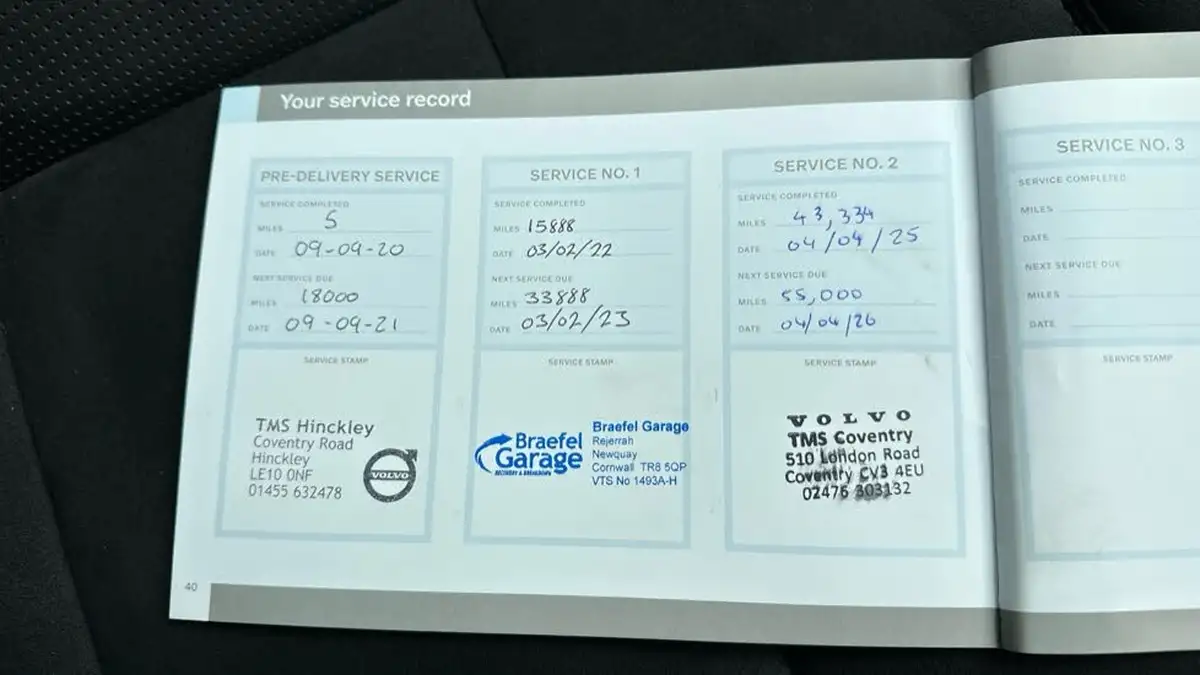 Your service record
PRE-DELIVERY SERVICE
SERVICE COMPLETED
MILES 5
DATE 09-09-20
NEXT SERVICE DUE
MILES 18000
DATE 09-09-21
SERVICE STAMP
TMS Hinckley
Coventry Road
Hinckley
LE10 0NF
01455 632478
VOLVO
SERVICE NO. 1
SERVICE COMPLETED
MILES 15888
DATE 03/02/22
NEXT SERVICE DUE
MILES 33888
DATE 03/02/23
SERVICE STAMP
Braefel
Garage
RECOVERY & BREAKDOWN
Braefel Garage
Rejerrah
Newquay
Cornwall TR8 5QP
VTS No 1493A-H
SERVICE NO. 2
SERVICE COMPLETED
MILES 43,334
DATE 04/04/25
NEXT SERVICE DUE
MILES 55,000
DATE 04/04/26
SERVICE STAMP
VOLVO
TMS Coventry
510 London Road
Coventry CV3 4EU
02476 303132
SERVICE NO. 3
SERVICE COMPLETED
MILES
DATE
NEXT SERVICE DUE
MILES
DATE
SERVICE STAMP
40